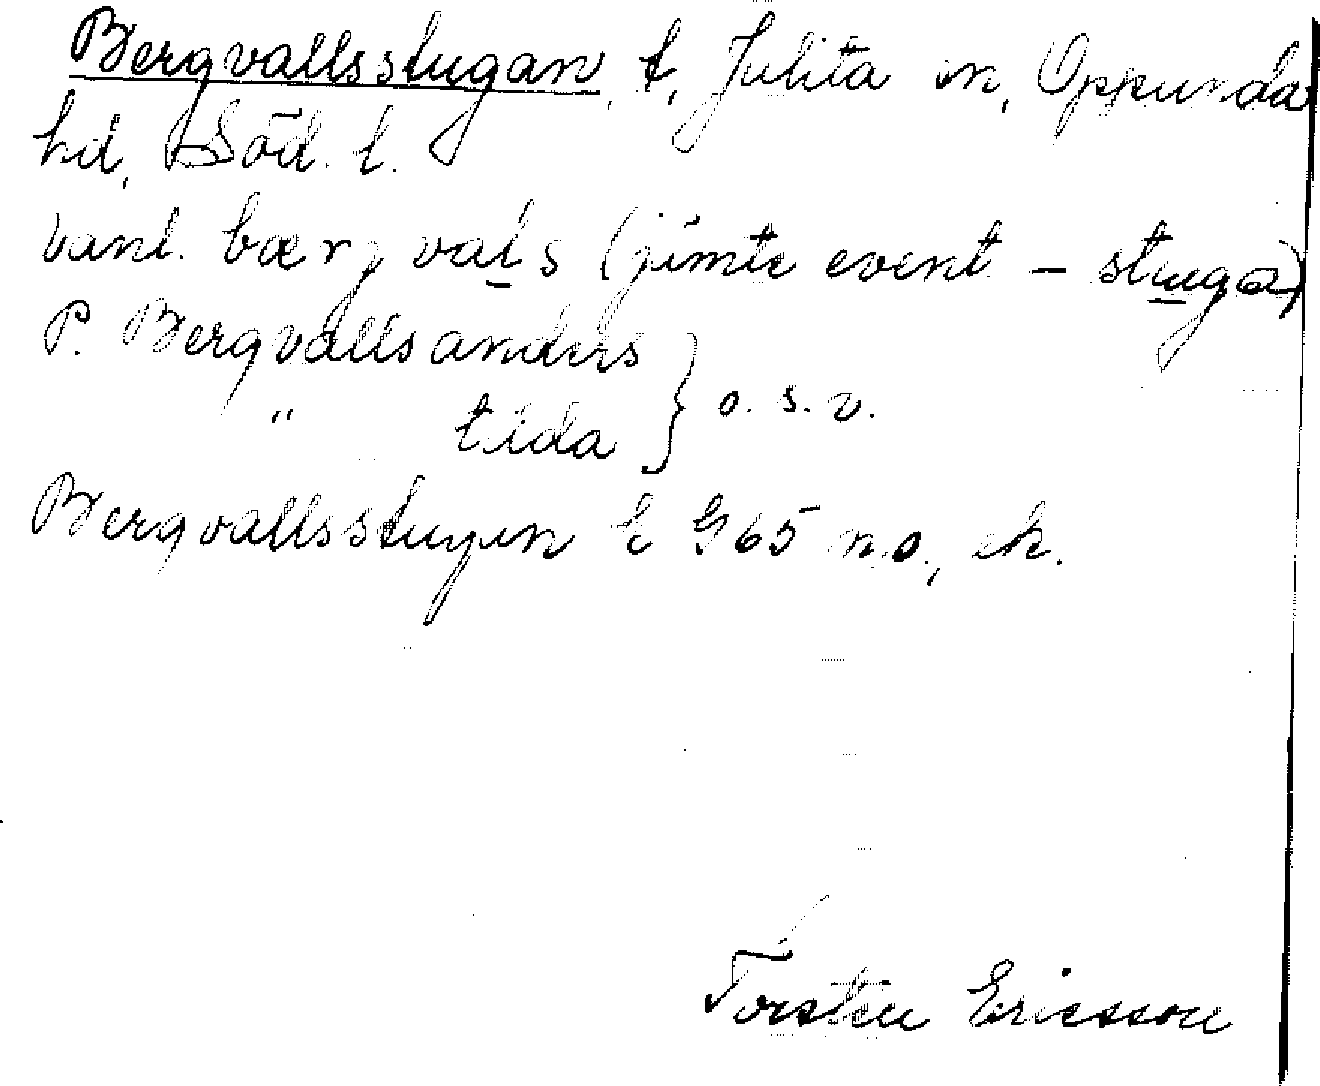 Bergvallsstugan, t, Julita sn, Oppunda
hd, Söd. l.
vanl. bærj vals (jämte event – stuga)
P. Bergvallsanders } o. s. v.
" tilda
Bergvallsstugen E G65 n.o., ek.
Torsten Ericsson